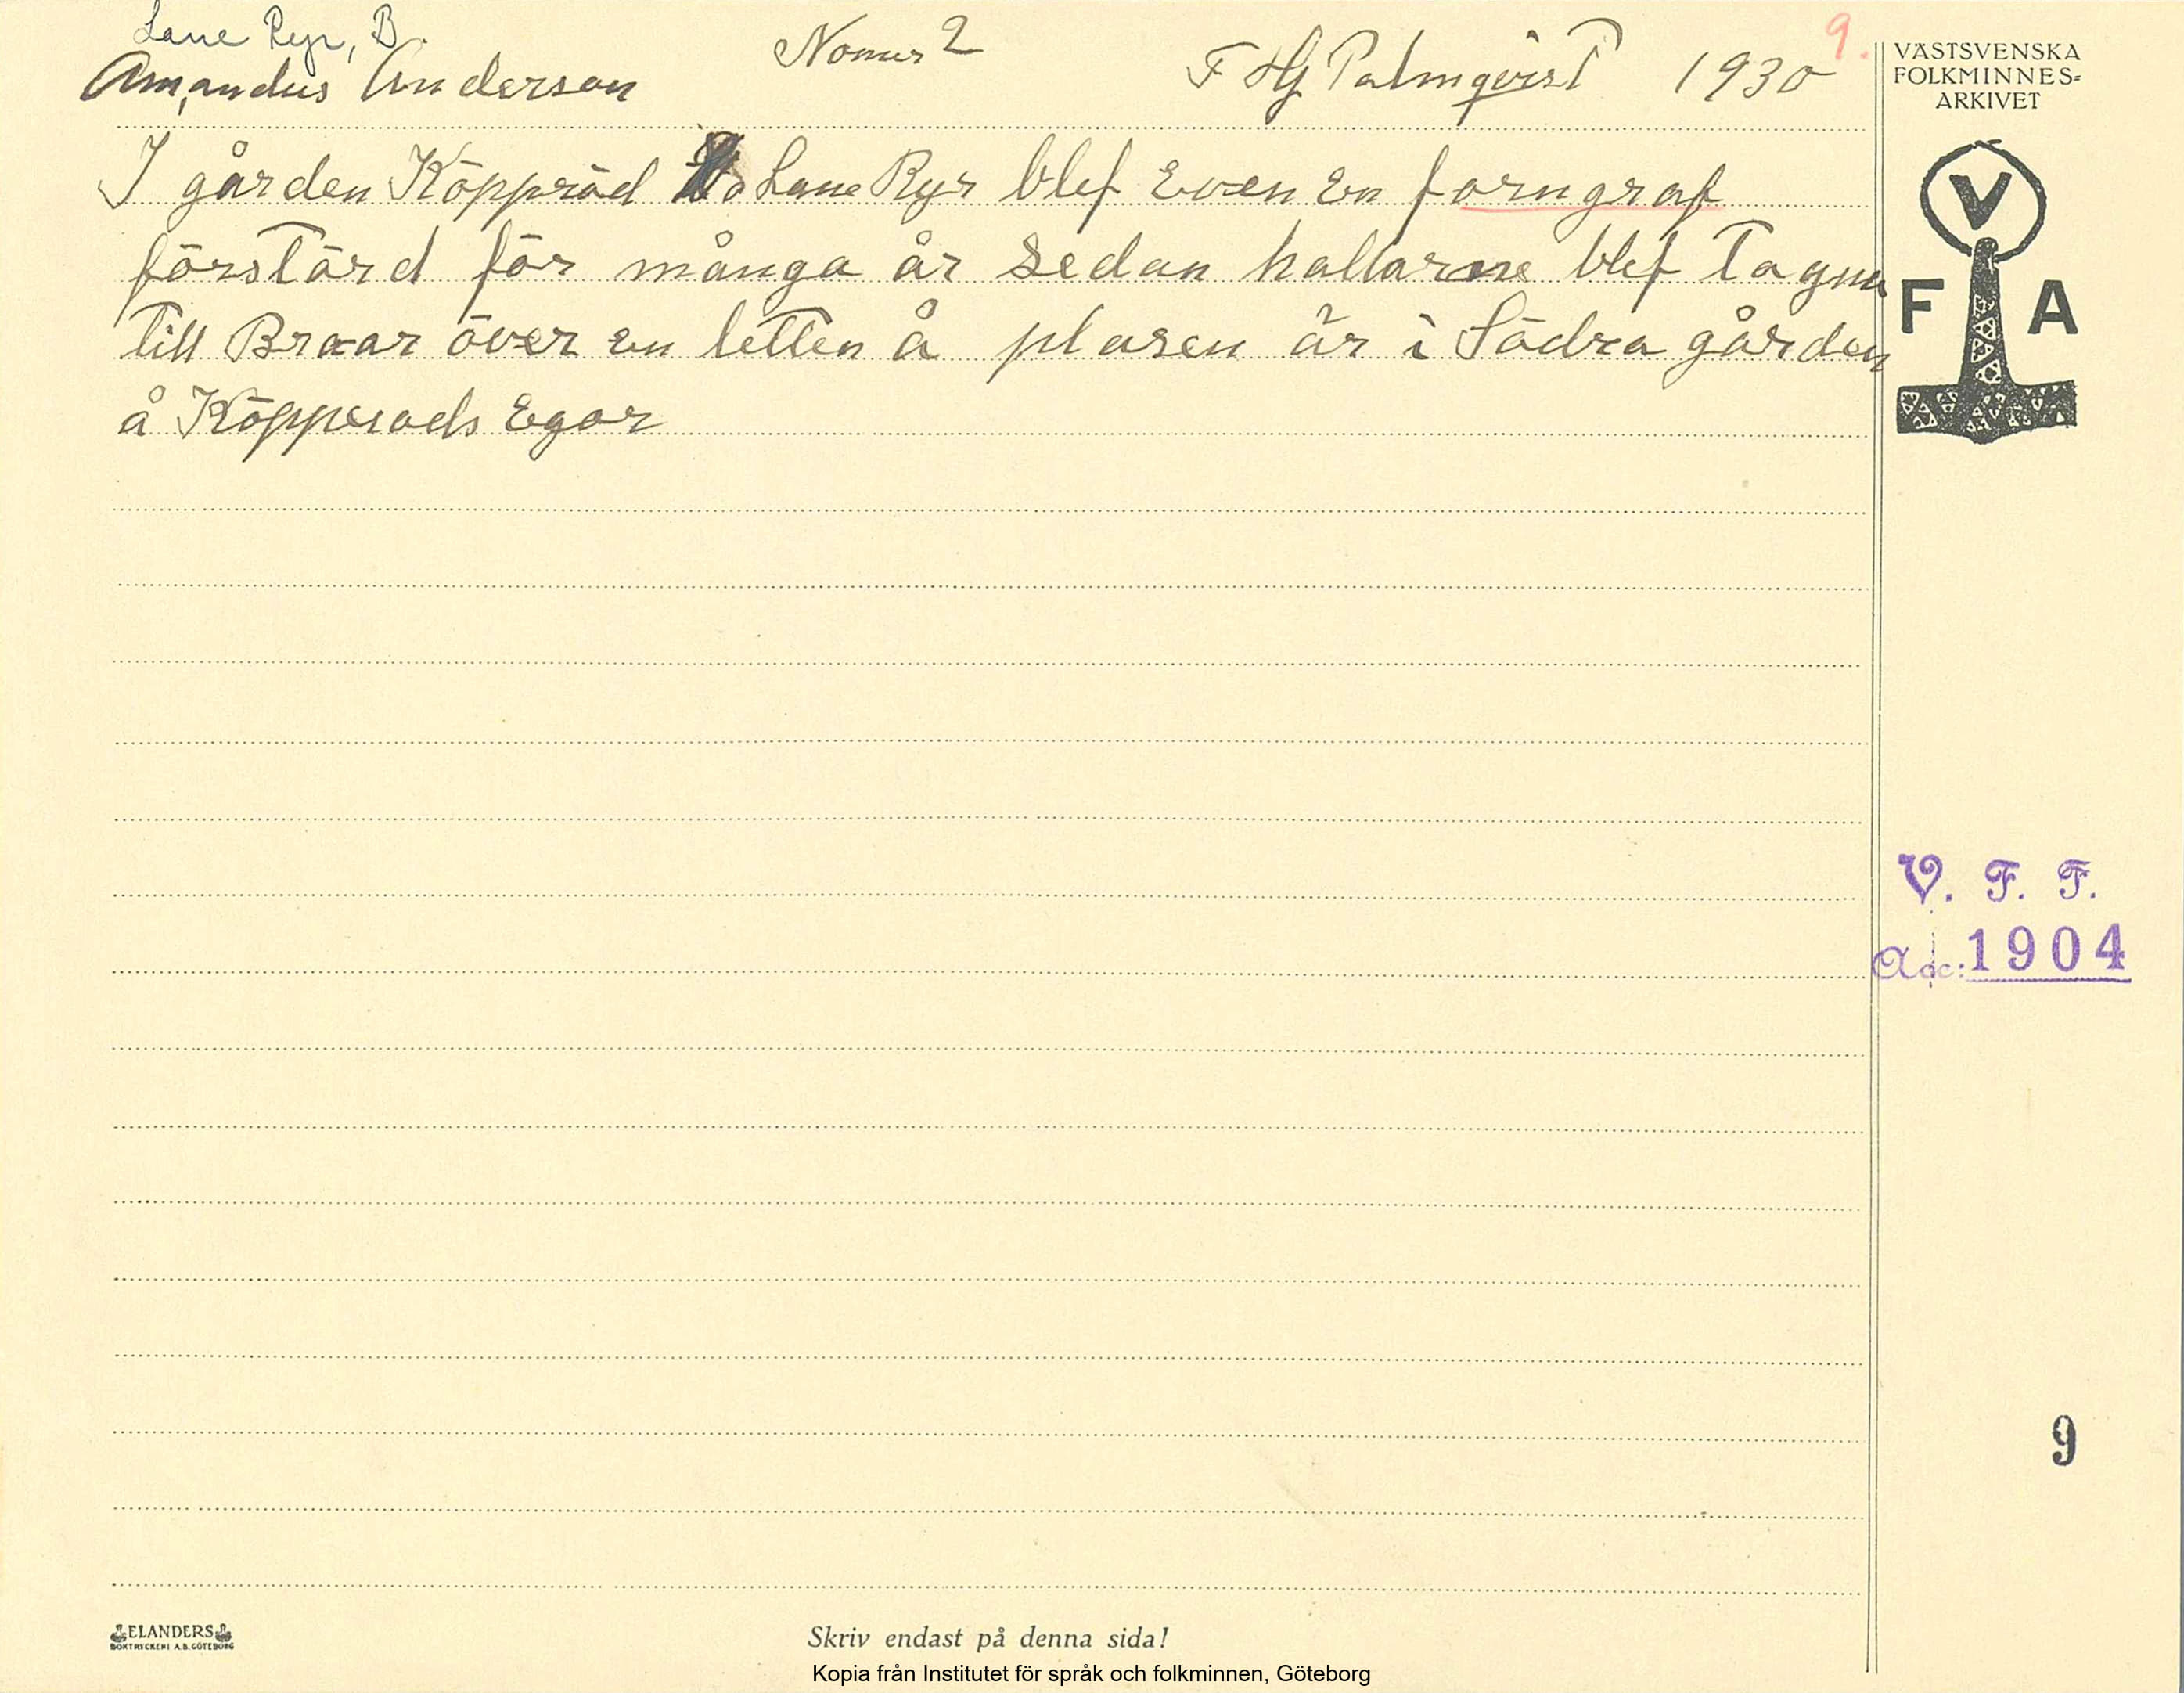 Lane Ryr, B.
9.
Amandus Anderson Nomer 2 F Hj Palmqvist 1930
I gården Köppröd Lane Ryr blef Even En forngraf
förstörd för många år Sedan hallarne blef Tagna
Till Broar över en letten å plasen är i Södra gården
å Köpperöds Egor
VÄSTSVENSKA
FOLKMINNES=
ARKIVET
V
F A
V. F. F.
Acc: 1904
9
ELANDERS
BOKTRYCKERI A.B. GÖTEBORG
Skriv endast på denna sida!
Kopia från Institutet för språk och folkminnen, Göteborg